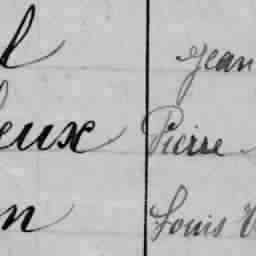 l Jean
eux Pierre
n Louis V